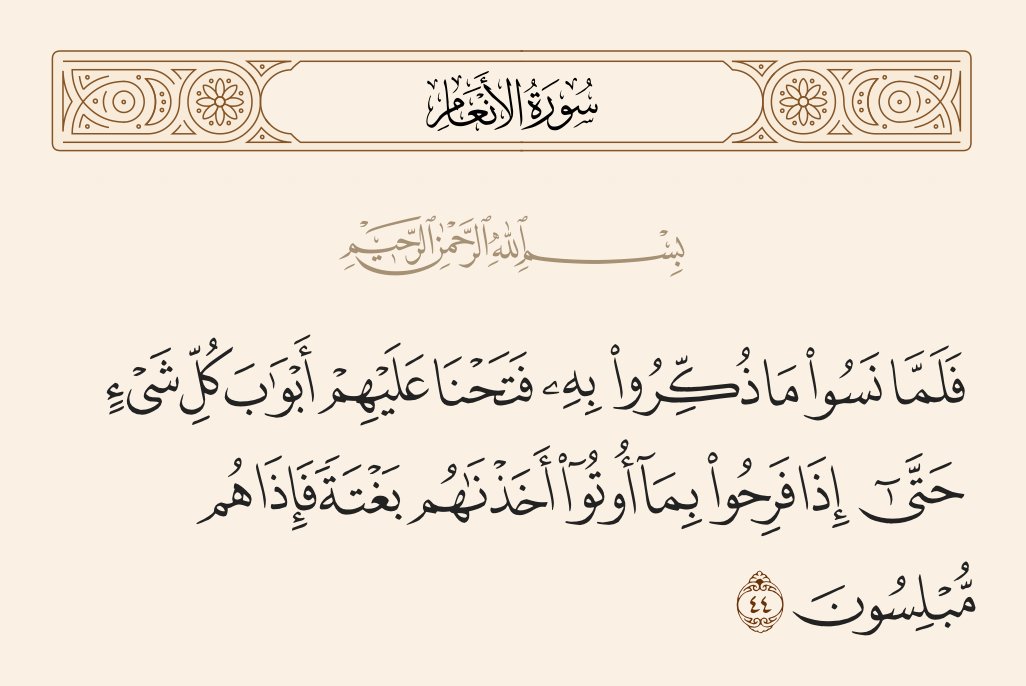 سُورَةُ الأَنْعَامِ
بِسْمِ ٱللَّهِ ٱلرَّحْمَٰنِ ٱلرَّحِيمِ
فَلَمَّا نَسُوا۟ مَا ذُكِّرُوا۟ بِهِۦ فَتَحْنَا عَلَيْهِمْ أَبْوَٰبَ كُلِّ شَىْءٍ
حَتَّىٰٓ إِذَا فَرِحُوا۟ بِمَآ أُوتُوٓا۟ أَخَذْنَٰهُم بَغْتَةً فَإِذَا هُم
مُّبْلِسُونَ ٤٤